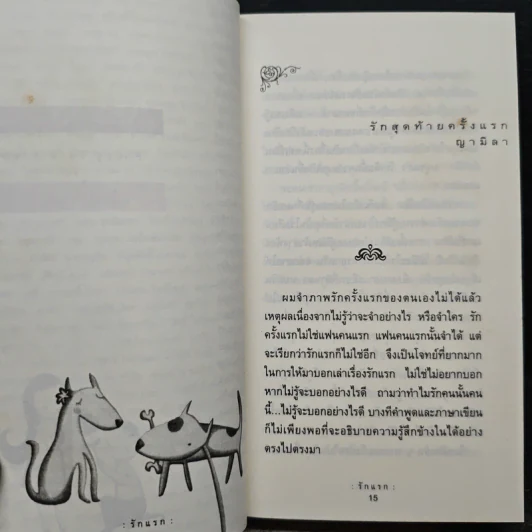 : รักแรก :
รักสุดท้ายครั้งแรก
ญามิลา
ผมจำภาพรักครั้งแรกของตนเองไม่ได้แล้ว
เหตุผลเนื่องจากไม่รู้ว่าจะจำอย่างไร หรือจำใคร รัก
ครั้งแรกไม่ใช่แฟนคนแรก แฟนคนแรกนั้นจำได้ แต่
จะเรียกว่ารักแรกก็ไม่ใช่อีก จึงเป็นโจทย์ที่ยากมาก
ในการให้มาบอกเล่าเรื่องรักแรก ไม่ใช่ไม่อยากบอก
หากไม่รู้จะบอกอย่างไรดี ถามว่าทำไมรักคนนั้นคน
นี้...ไม่รู้จะบอกอย่างไรดี บางทีคำพูดและภาษาเขียน
ก็ไม่เพียงพอที่จะอธิบายความรู้สึกข้างในได้อย่าง
ตรงไปตรงมา
: รักแรก :
15